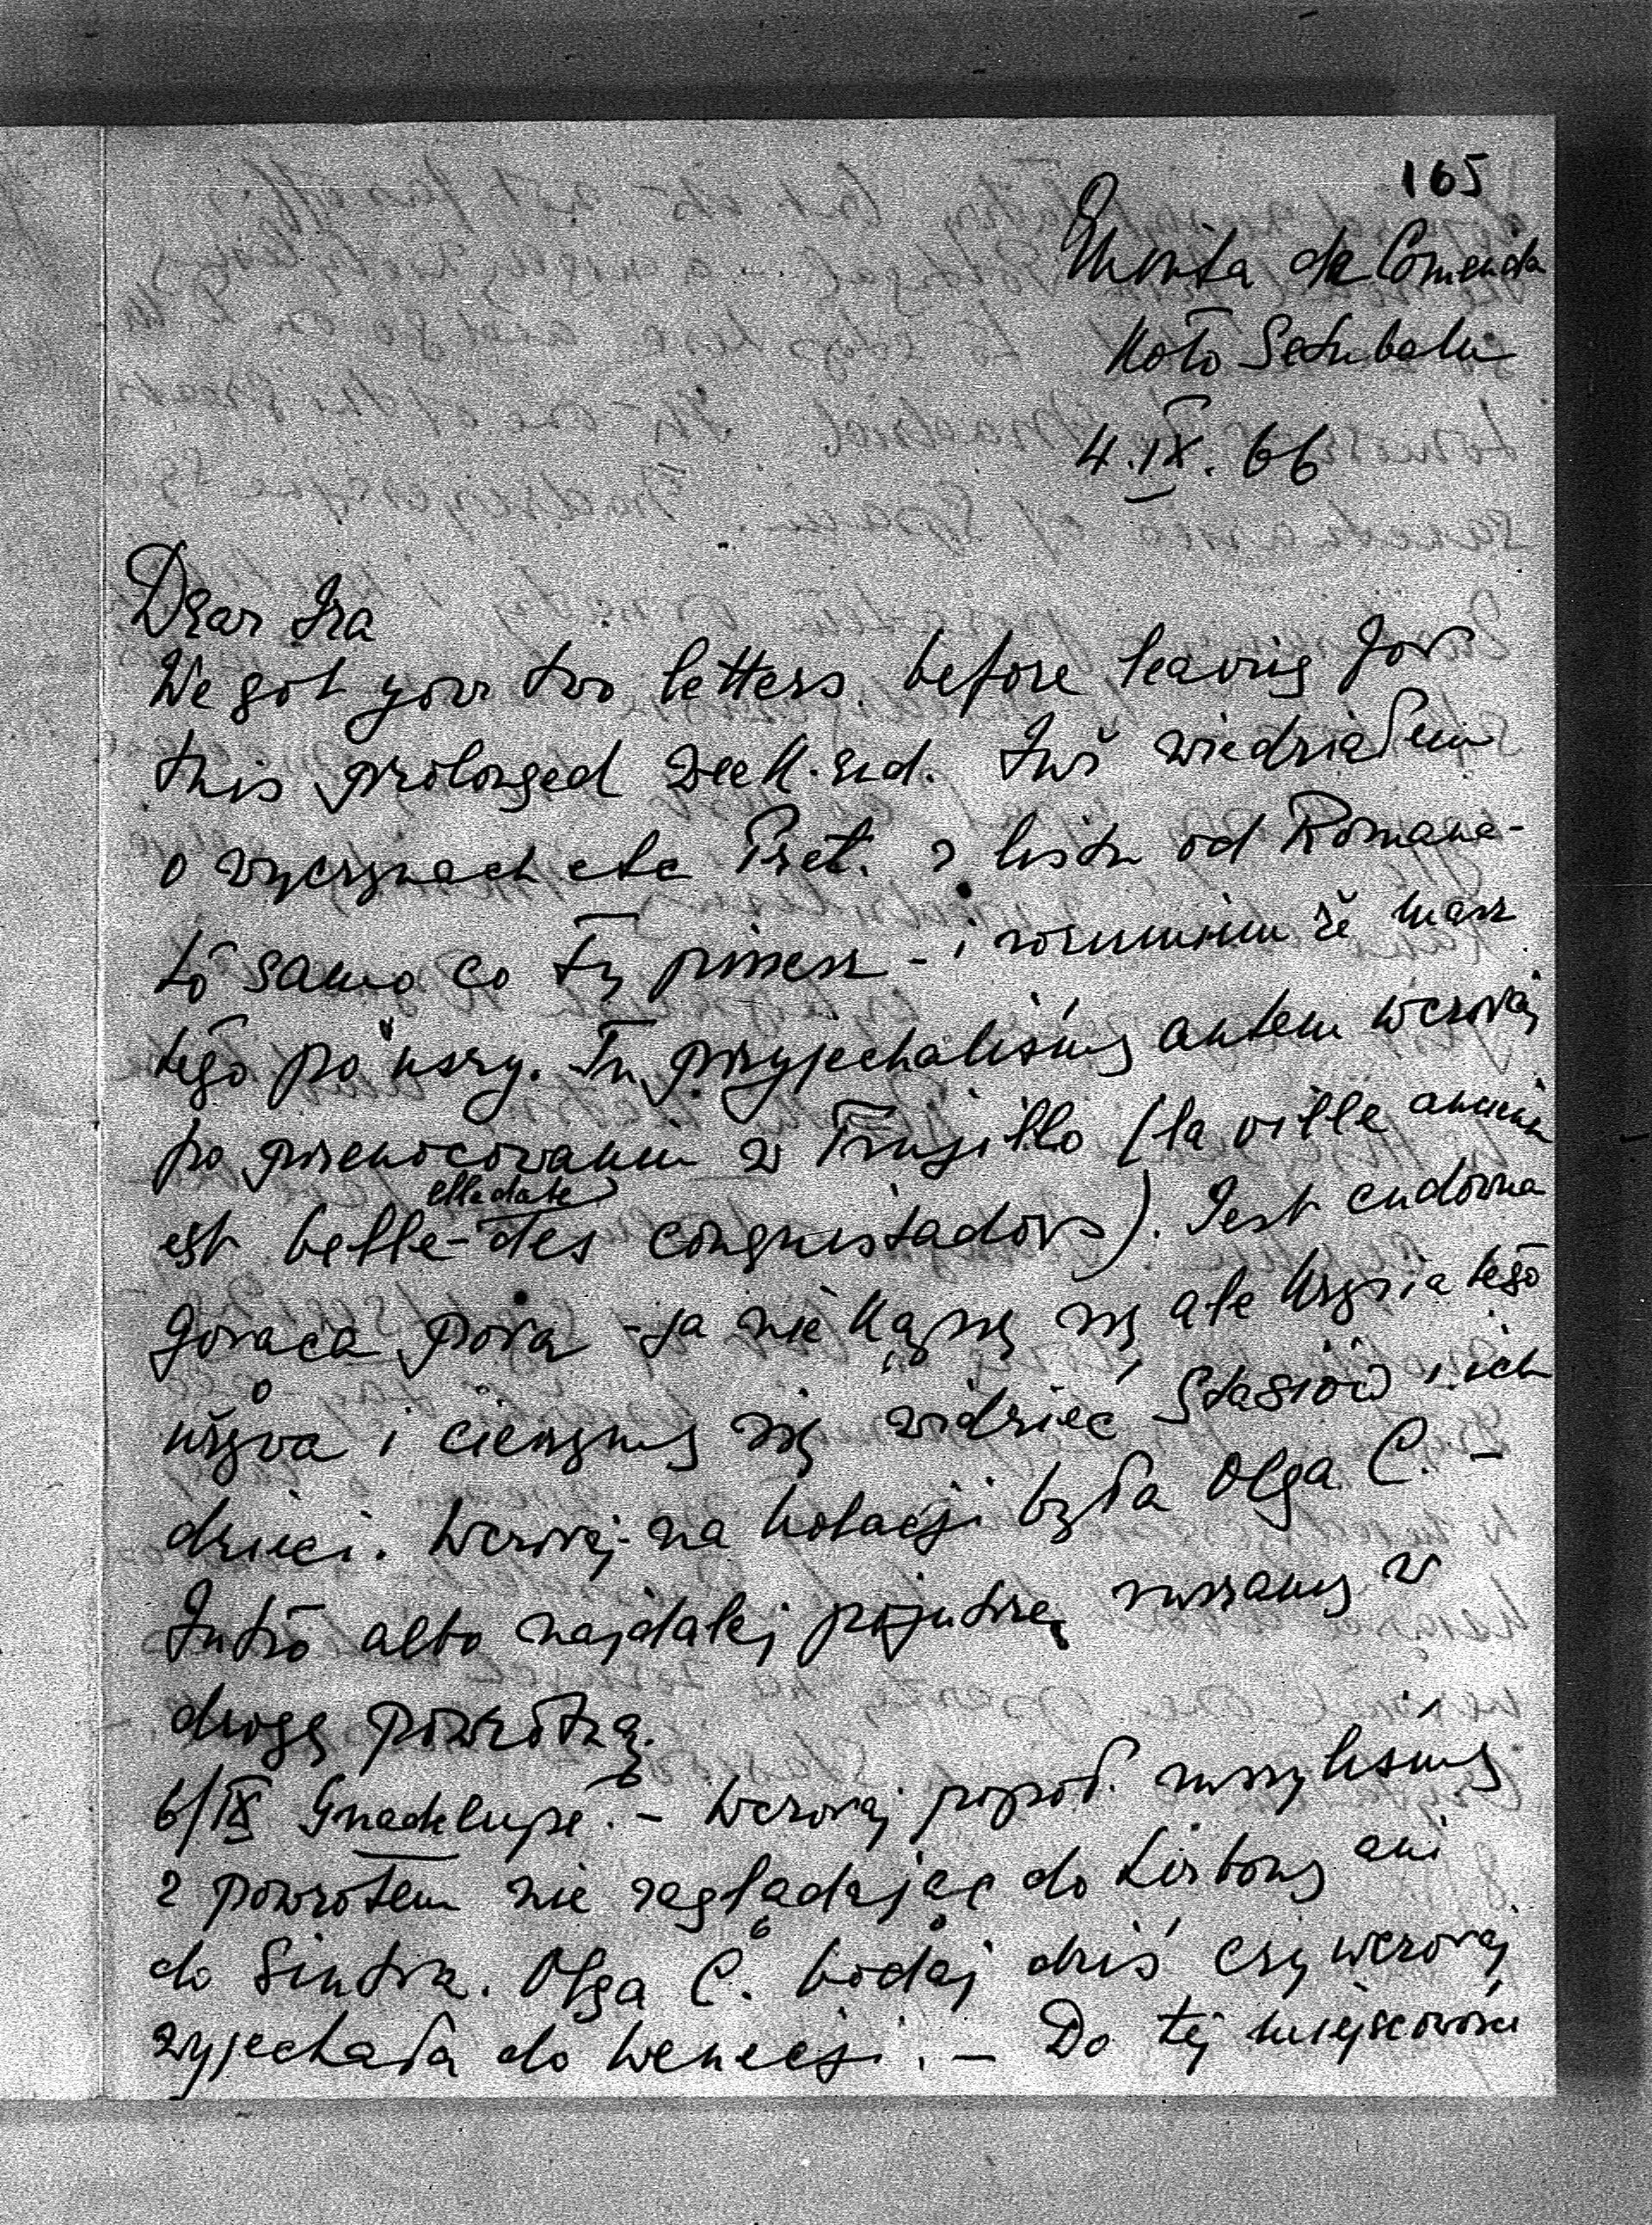 165
Quinta da Comenda
Koło Setubalu
4.IX.66
Dear Ira
We got your two letters before leaving for
this prolonged week-end. Już wiedziałem
o wyczynach etc Pret. z listu od Romana -
to samo co ty piszesz - i rozumiem że masz
tego po uszy. Tu przyjechaliśmy autem wczoraj
po przenocowaniu w Trujillo (la ville
est belle - elle date des conquistadors). Jest cudowna
gorąca pora - ja nie kąpię się ale Krysia tego
używa i cieszymy się widzieć Stasiów i ich
dzieci. Wczoraj na kolacji była Olga C. -
Jutro albo najdalej pojutrze ruszamy w
drogę powrotną.
6/IX Guadelupe. - Wczoraj popoł. ruszyliśmy
z powrotem nie zaglądając do Lizbony ani
do Sintra. Olga C. bodaj dziś czy wczoraj
wyjechała do Wenecji. - Do tej miejscowości